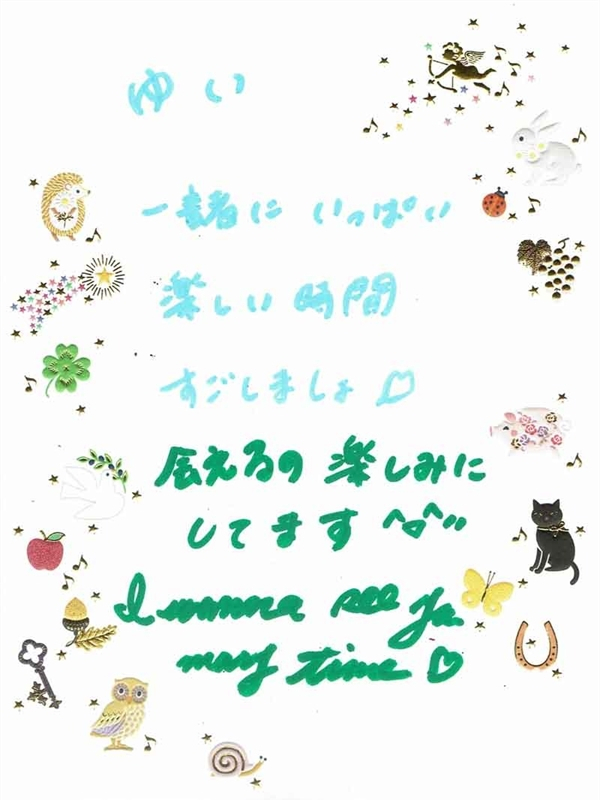 ゆい
一緒に いっぱい
楽しい 時間
すごしましょ♡
会えるの 楽しみに
してます ^o^"
I wanna see ya
many time ♡